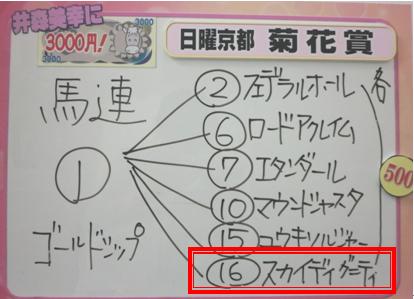 井森美幸に
3000
3000円!
3000
日曜京都 菊花賞
馬連
① ゴールドシップ
② フェデラルホール
⑥ ロードアクレイム
⑦ エタンダール
⑩ マウンドシャスタ
⑮ ユウキソルジャー
⑯ スカイディグニティ
各
500